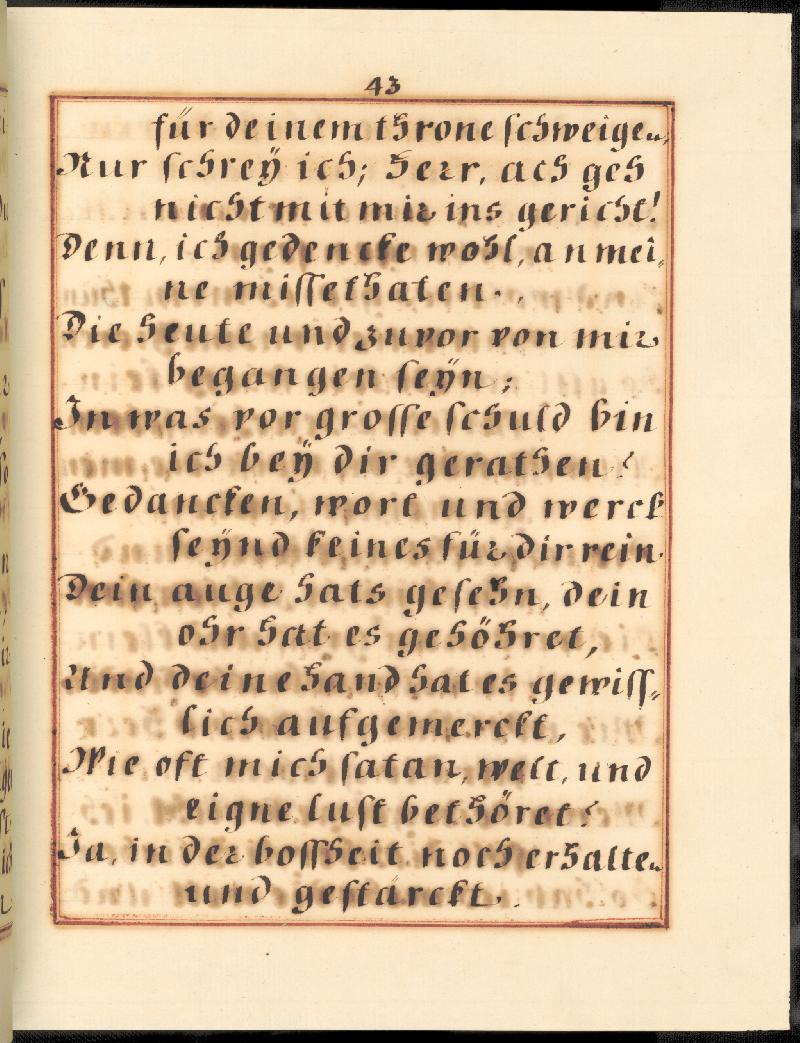 43
für deinem throne schweigen,
Nur schreÿ ich; Herr, ach geh
nicht mit mir ins gericht!
Denn, ich gedencke wohl, an mei,
ne missethaten.
Die heute und zuvor von mir
begangen seÿn;
In was vor grosse schuld bin
ich beÿ dir gerathen?
Gedancken, wort und werck
seÿnd keines für dir rein.
Dein auge hats gesehn, dein
ohr hat es gehöhret,
Und deine hand hat es gewiss,
lich aufgemerckt,
Wie oft mich satan, welt, und
eigne lust bethöret?
Ja, in der bossheit noch erhalten
und gestärckt.